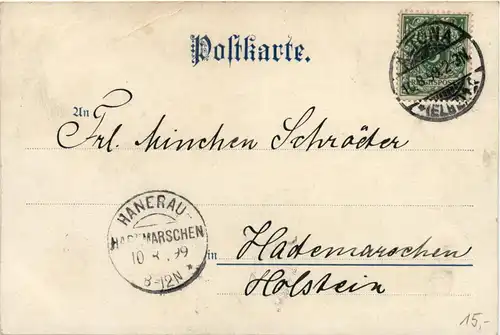 Postkarte.
ALTONA
(ELBE)
An
Frl. Minchen Schröder
HANERAU-
HADEMARSCHEN
10 8 99
8-12N
in
Hademarschen
Holstein
15,-